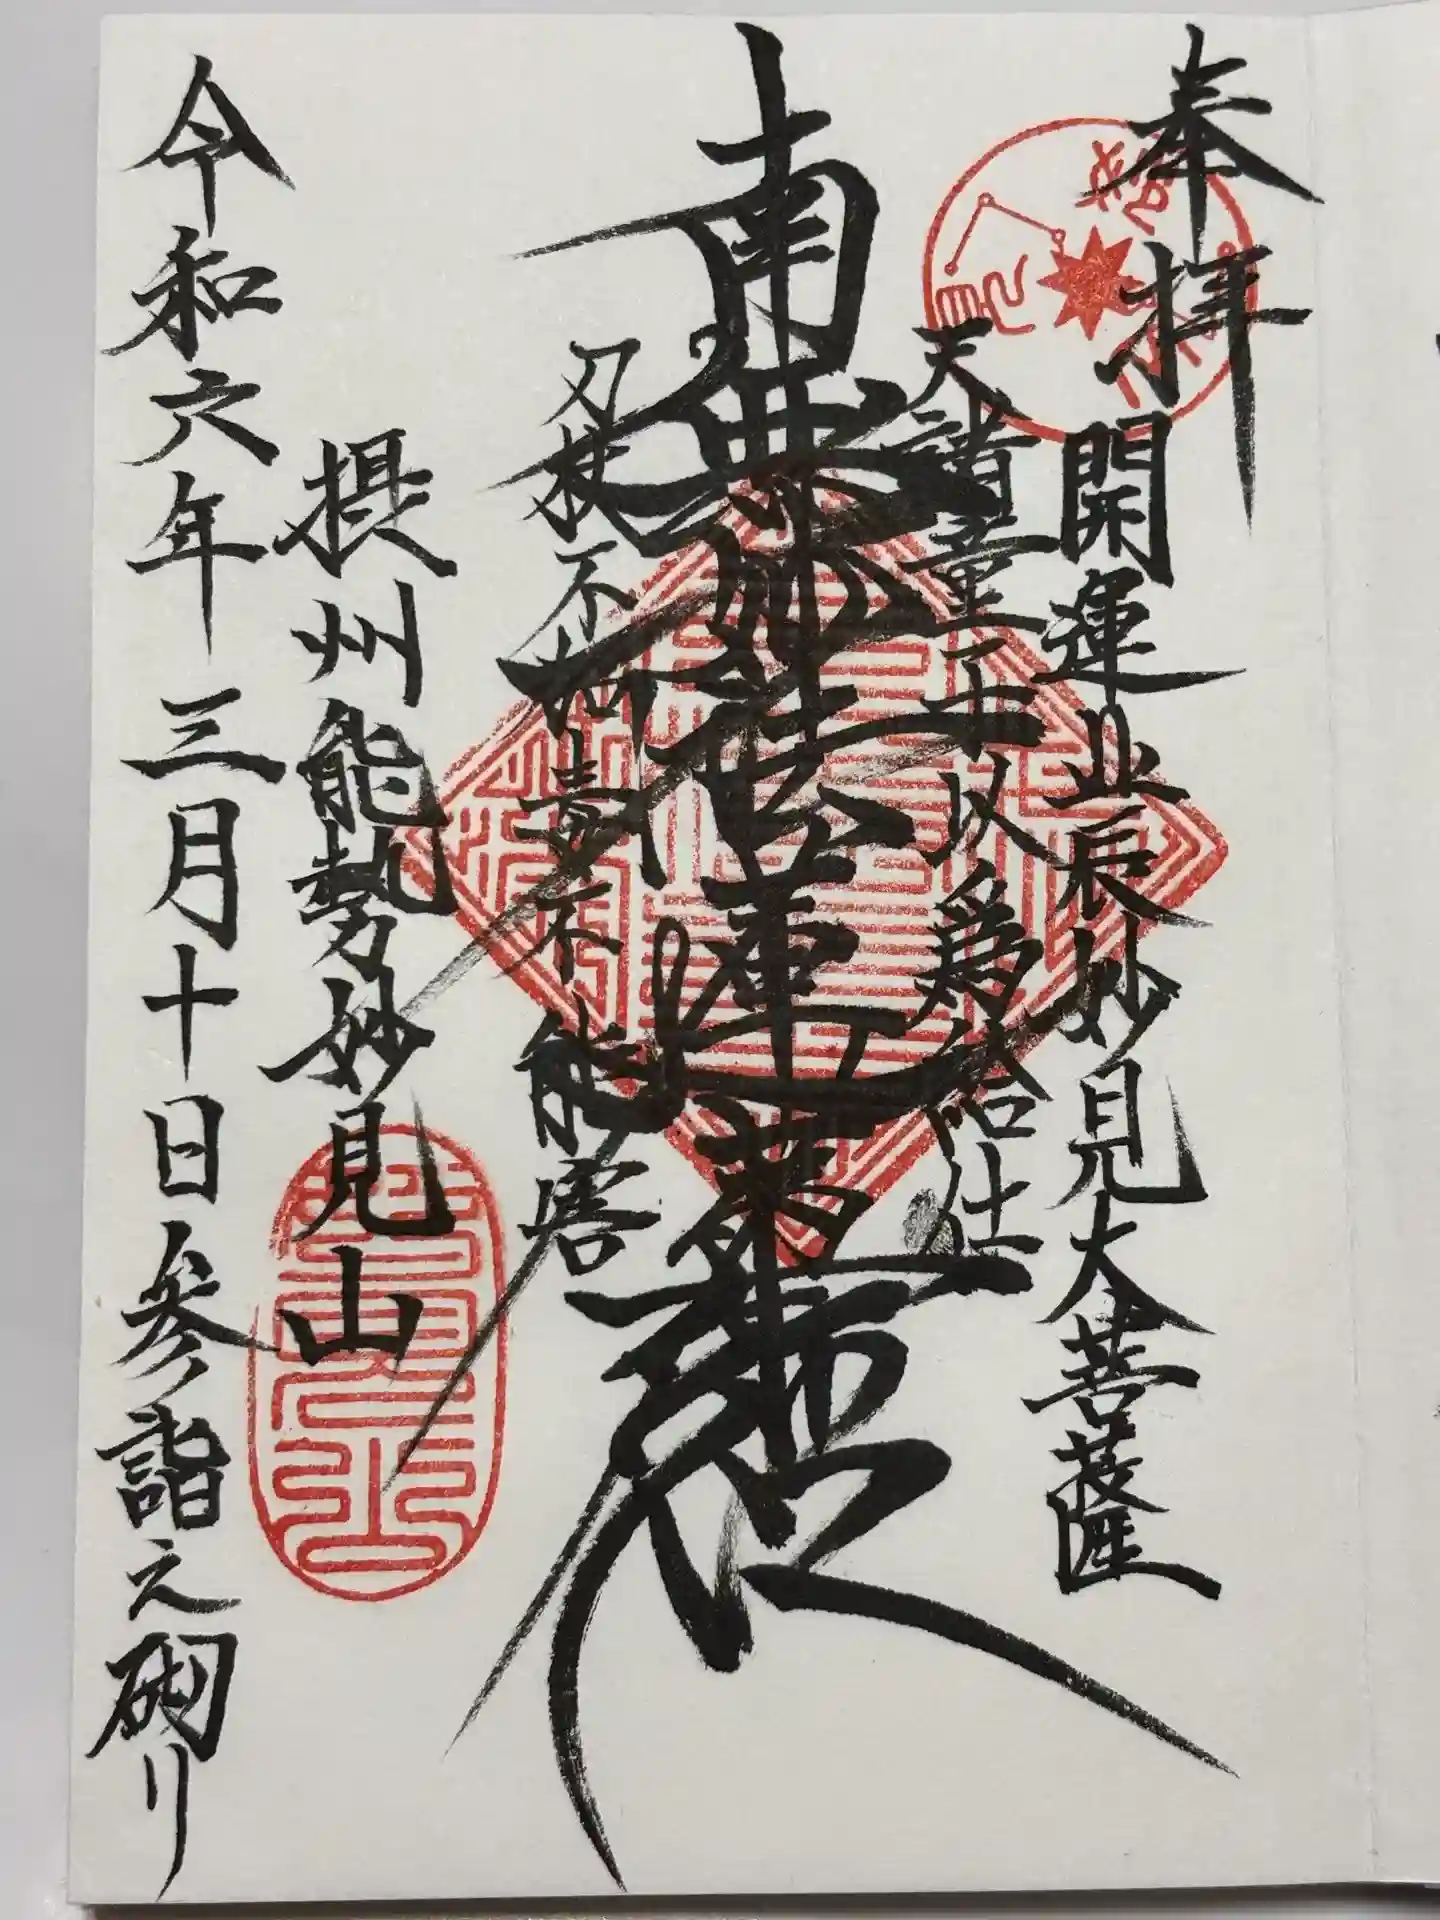 奉拝
開運北辰妙見大菩薩
天諸童子以爲給仕
南無妙法蓮華経
刀杖不加毒不能害
摂州能勢妙見山
令和六年三月十日参詣之砌リ